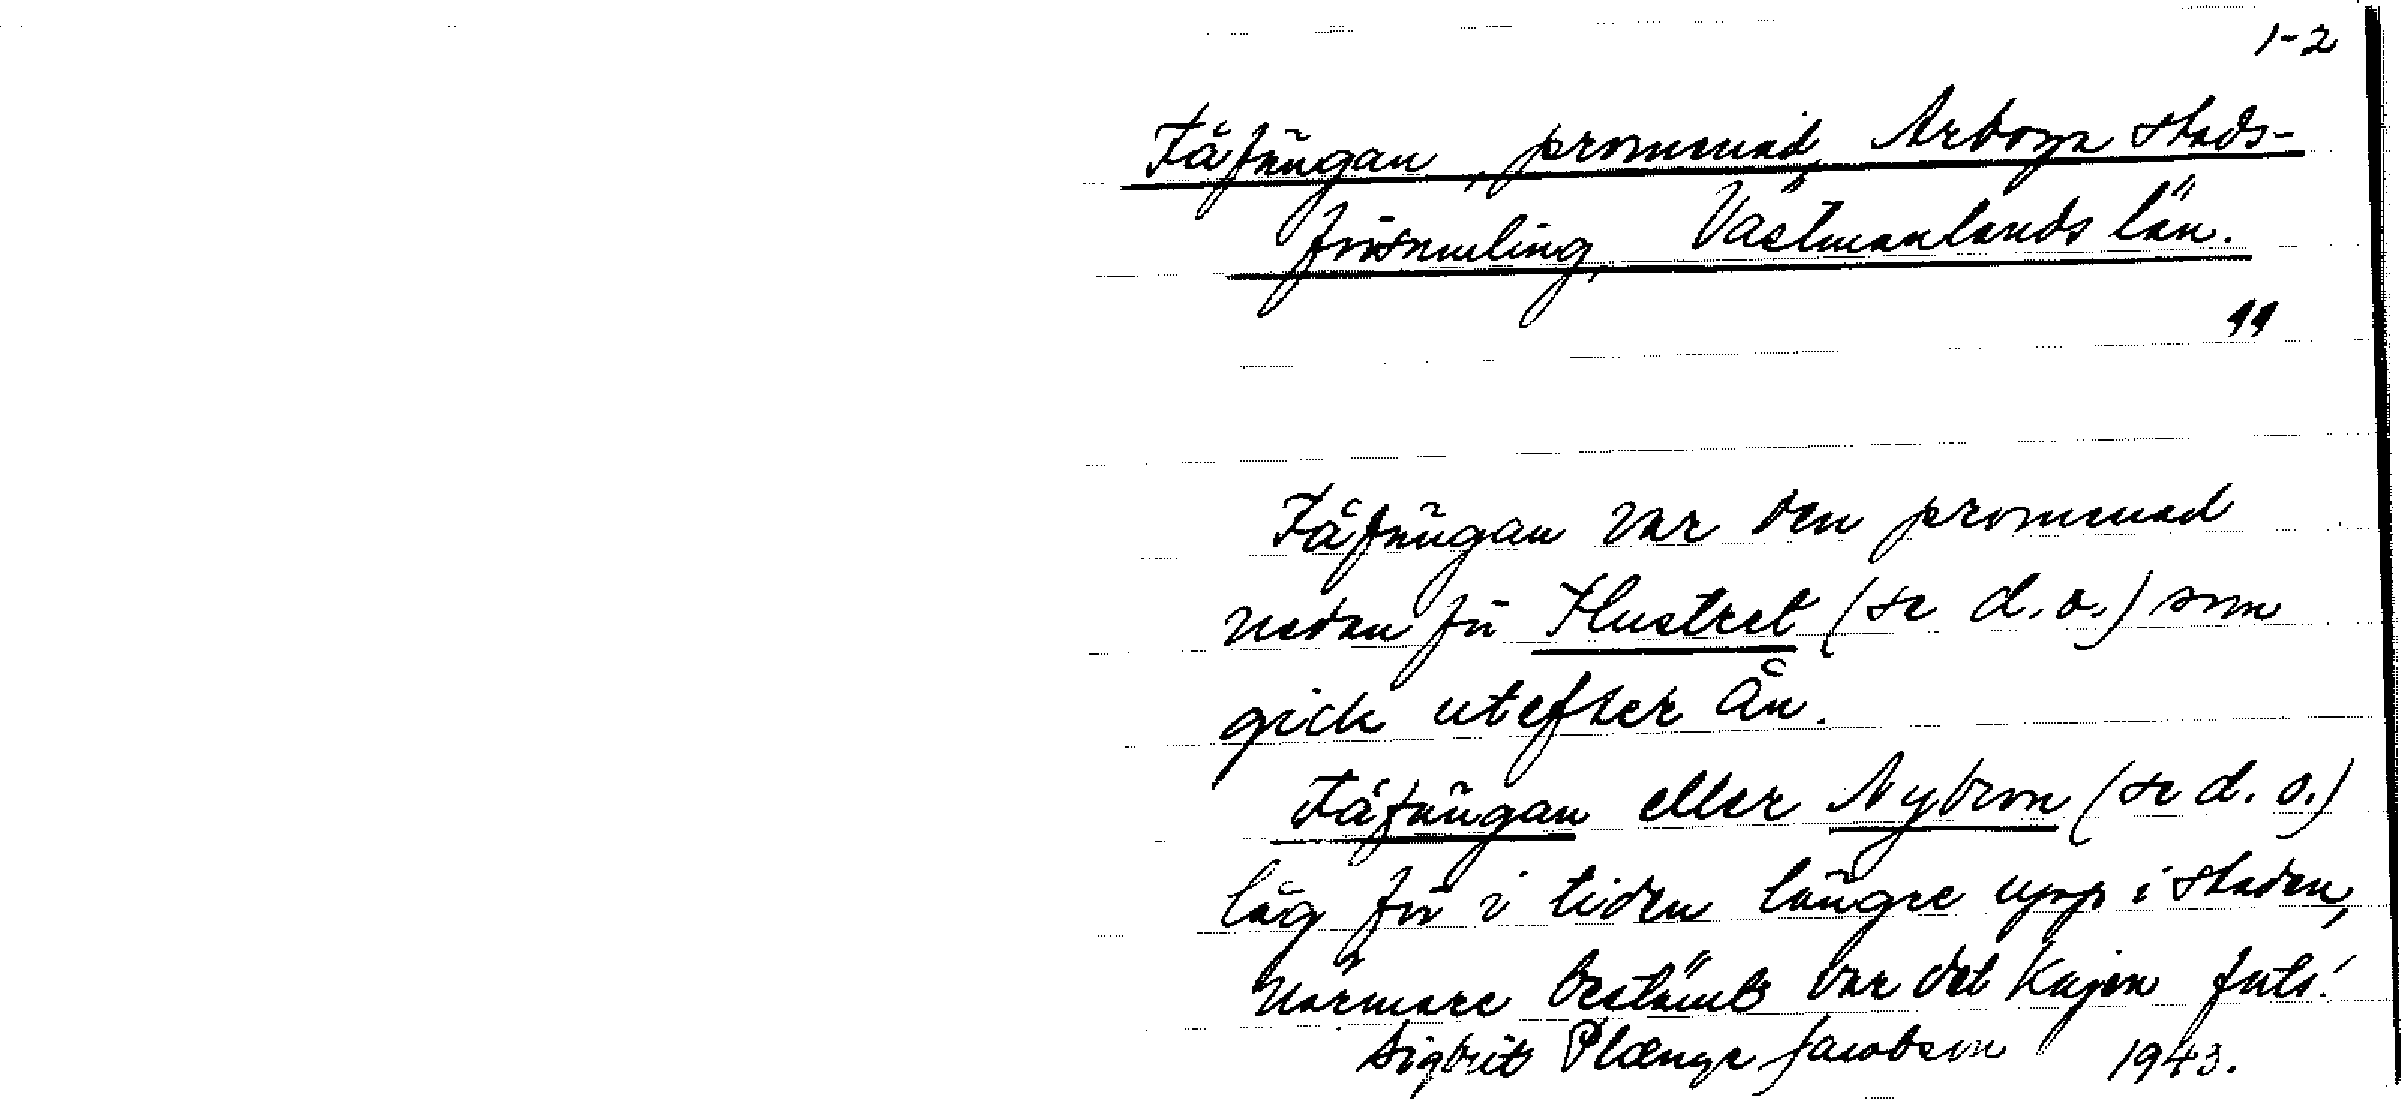 1-2
Fåfängan, promenad, Arboga stads-
församling, Västmanlands län.
"
Fåfängan var den promenad
nedan för Flustret (se d.o.) som
gick utefter ån.
Fåfängan eller Nybron (se d.o.)
låg förr i tiden längre upp i staden,
närmare bestämt var det Kajen
Sigbrit Plænge Jacobson 1943.